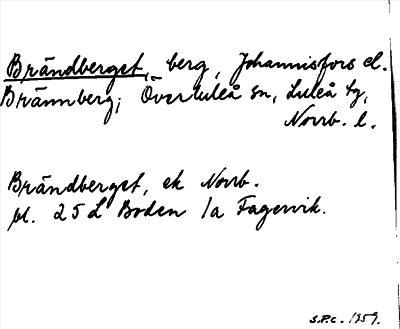 Brändberget, berg, Johannisfors el.
Brännberg; Överluleå sn, Luleå tg,
Norrb. l.
Brändberget, ek Norrb.
bl. 25 L Boden 1a Fagervik.
S.P.C. 1959.